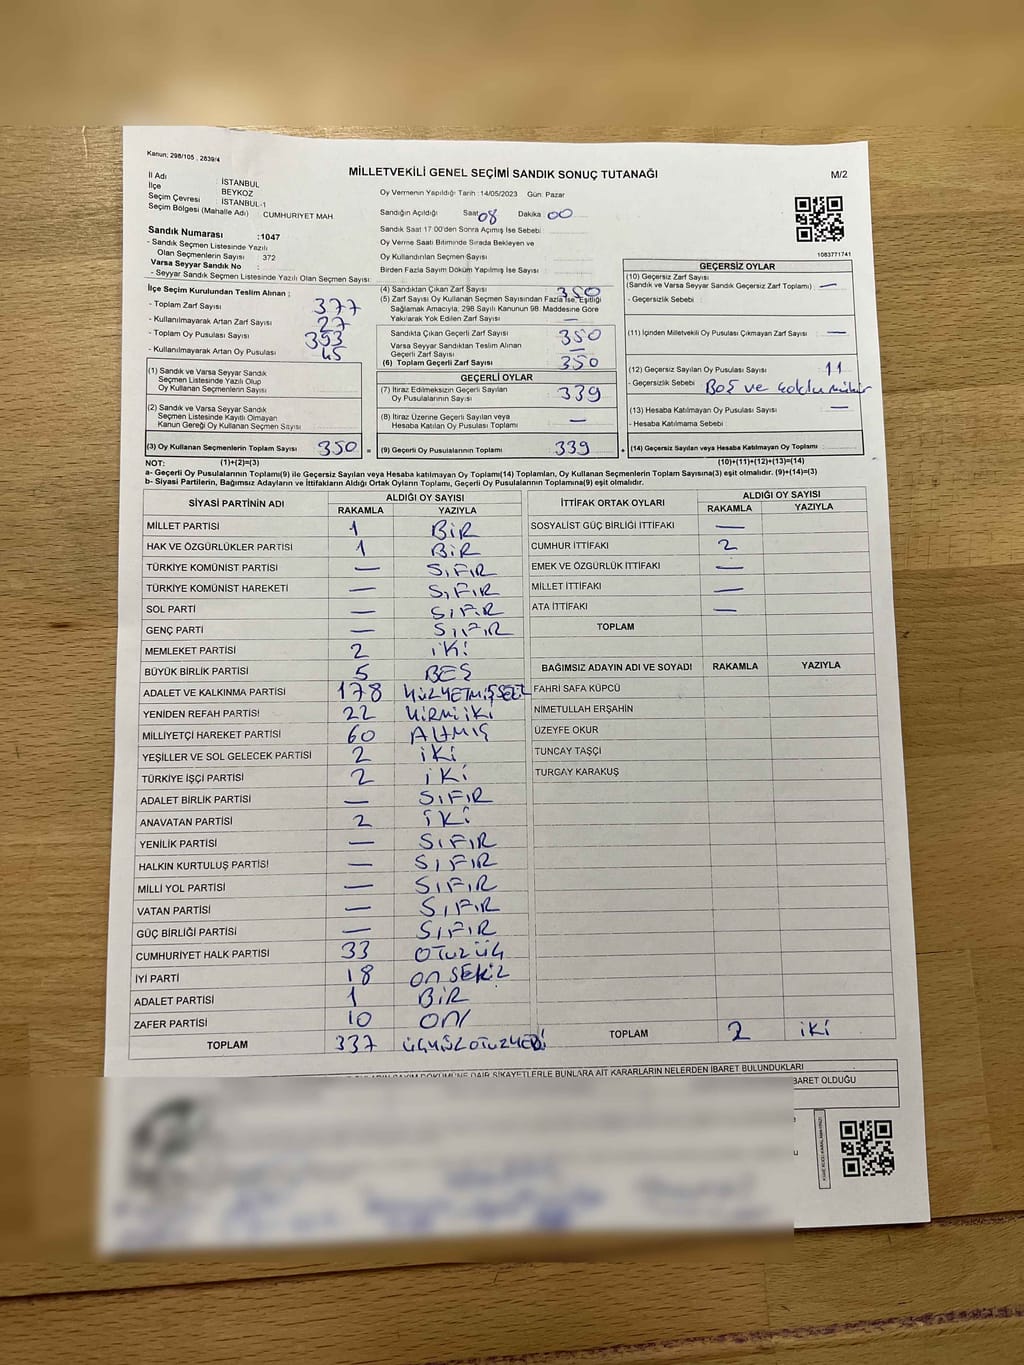 Kanun: 298/105 , 2839/4
MİLLETVEKİLİ GENEL SEÇİMİ SANDIK SONUÇ TUTANAĞI
M/2
İl Adı : İSTANBUL
İlçe : BEYKOZ
Seçim Çevresi : İSTANBUL-1
Seçim Bölgesi (Mahalle Adı) : CUMHURİYET MAH.
Sandık Numarası :1047
- Sandık Seçmen Listesinde Yazılı
Olan Seçmenlerin Sayısı : 372
Varsa Seyyar Sandık No :
- Seyyar Sandık Seçmen Listesinde Yazılı Olan Seçmen Sayısı:
Oy Vermenin Yapıldığı Tarih :14/05/2023 Gün: Pazar
Sandığın Açıldığı Saat 08 Dakika 00
Sandık Saat 17:00'den Sonra Açılmış İse Sebebi:
Oy Verme Saati Bitiminde Sırada Bekleyen ve
Oy Kullandırılan Seçmen Sayısı :
Birden Fazla Sayım Döküm Yapılmış İse Sayısı :
1083771741
İlçe Seçim Kurulundan Teslim Alınan ;
- Toplam Zarf Sayısı : 377
- Kullanılmayarak Artan Zarf Sayısı : 27
- Toplam Oy Pusulası Sayısı : 393
- Kullanılmayarak Artan Oy Pusulası : 45
(1) Sandık ve Varsa Seyyar Sandık
Seçmen Listesinde Yazılı Olup
Oy Kullanan Seçmenlerin Sayısı :
(2) Sandık ve Varsa Seyyar Sandık
Seçmen Listesinde Kayıtlı Olmayan
Kanun Gereği Oy Kullanan Seçmen Sayısı :
(3) Oy Kullanan Seçmenlerin Toplam Sayısı : 350 =
(4) Sandıktan Çıkan Zarf Sayısı : 350
(5) Zarf Sayısı Oy Kullanan Seçmen Sayısından Fazla İse, Eşitliği
Sağlamak Amacıyla, 298 Sayılı Kanunun 98. Maddesine Göre
Yakılarak Yok Edilen Zarf Sayısı : —
Sandıkta Çıkan Geçerli Zarf Sayısı : 350
Varsa Seyyar Sandıktan Teslim Alınan
Geçerli Zarf Sayısı : —
(6) Toplam Geçerli Zarf Sayısı : 350
GEÇERLİ OYLAR
(7) İtiraz Edilmeksizin Geçerli Sayılan
Oy Pusulalarının Sayısı : 339
(8) İtiraz Üzerine Geçerli Sayılan veya
Hesaba Katılan Oy Pusulası Toplamı : —
(9) Geçerli Oy Pusulalarının Toplamı : 339 +
GEÇERSİZ OYLAR
(10) Geçersiz Zarf Sayısı
(Sandık ve Varsa Seyyar Sandık Geçersiz Zarf Toplamı) : —
- Geçersizlik Sebebi :
(11) İçinden Milletvekili Oy Pusulası Çıkmayan Zarf Sayısı : —
(12) Geçersiz Sayılan Oy Pusulası Sayısı : 11
- Geçersizlik Sebebi : Boş ve çoklu mühür
(13) Hesaba Katılmayan Oy Pusulası Sayısı : —
- Hesaba Katılmama Sebebi :
(14) Geçersiz Sayılan veya Hesaba Katılmayan Oy Toplamı :
NOT: (1)+(2)=(3) (10)+(11)+(12)+(13)=(14)
a- Geçerli Oy Pusulalarının Toplamı(9) ile Geçersiz Sayılan veya Hesaba katılmayan Oy Toplamı(14) Toplamları, Oy Kullanan Seçmenlerin Toplam Sayısına(3) eşit olmalıdır. (9)+(14)=(3)
b- Siyasi Partilerin, Bağımsız Adayların ve İttifakların Aldığı Ortak Oyların Toplamı, Geçerli Oy Pusulalarının Toplamına(9) eşit olmalıdır.
SİYASİ PARTİNİN ADI ALDIĞI OY SAYISI
RAKAMLA YAZIYLA
MİLLET PARTİSİ 1 BİR
HAK VE ÖZGÜRLÜKLER PARTİSİ 1 BİR
TÜRKİYE KOMÜNİST PARTİSİ — SIFIR
TÜRKİYE KOMÜNİST HAREKETİ — SIFIR
SOL PARTİ — SIFIR
GENÇ PARTİ — SIFIR
MEMLEKET PARTİSİ 2 İKİ
BÜYÜK BİRLİK PARTİSİ 5 BEŞ
ADALET VE KALKINMA PARTİSİ 178 YÜZYETMİŞSEKİZ
YENİDEN REFAH PARTİSİ 22 YİRMİİKİ
MİLLİYETÇİ HAREKET PARTİSİ 60 ALTMIŞ
YEŞİLLER VE SOL GELECEK PARTİSİ 2 İKİ
TÜRKİYE İŞÇİ PARTİSİ 2 İKİ
ADALET BİRLİK PARTİSİ — SIFIR
ANAVATAN PARTİSİ 2 İKİ
YENİLİK PARTİSİ — SIFIR
HALKIN KURTULUŞ PARTİSİ — SIFIR
MİLLİ YOL PARTİSİ — SIFIR
VATAN PARTİSİ — SIFIR
GÜÇ BİRLİĞİ PARTİSİ — SIFIR
CUMHURİYET HALK PARTİSİ 33 OTUZÜÇ
İYİ PARTİ 18 ONSEKİZ
ADALET PARTİSİ 1 BİR
ZAFER PARTİSİ 10 ON
TOPLAM 337 ÜÇYÜZOTUZYEDİ
İTTİFAK ORTAK OYLARI ALDIĞI OY SAYISI
RAKAMLA YAZIYLA
SOSYALİST GÜÇ BİRLİĞİ İTTİFAKI —
CUMHUR İTTİFAKI 2
EMEK VE ÖZGÜRLÜK İTTİFAKI —
MİLLET İTTİFAKI —
ATA İTTİFAKI —
TOPLAM
BAĞIMSIZ ADAYIN ADI VE SOYADI RAKAMLA YAZIYLA
FAHRİ SAFA KÜPCÜ
NİMETULLAH ERŞAHİN
ÜZEYFE OKUR
TUNCAY TAŞÇI
TURGAY KARAKUŞ
TOPLAM 2 İKİ
SAYIM DÖKÜMÜNE DAİR ŞİKAYETLERLE BUNLARA AİT KARARLARIN NELERDEN İBARET BULUNDUKLARI
BARET OLDUĞU